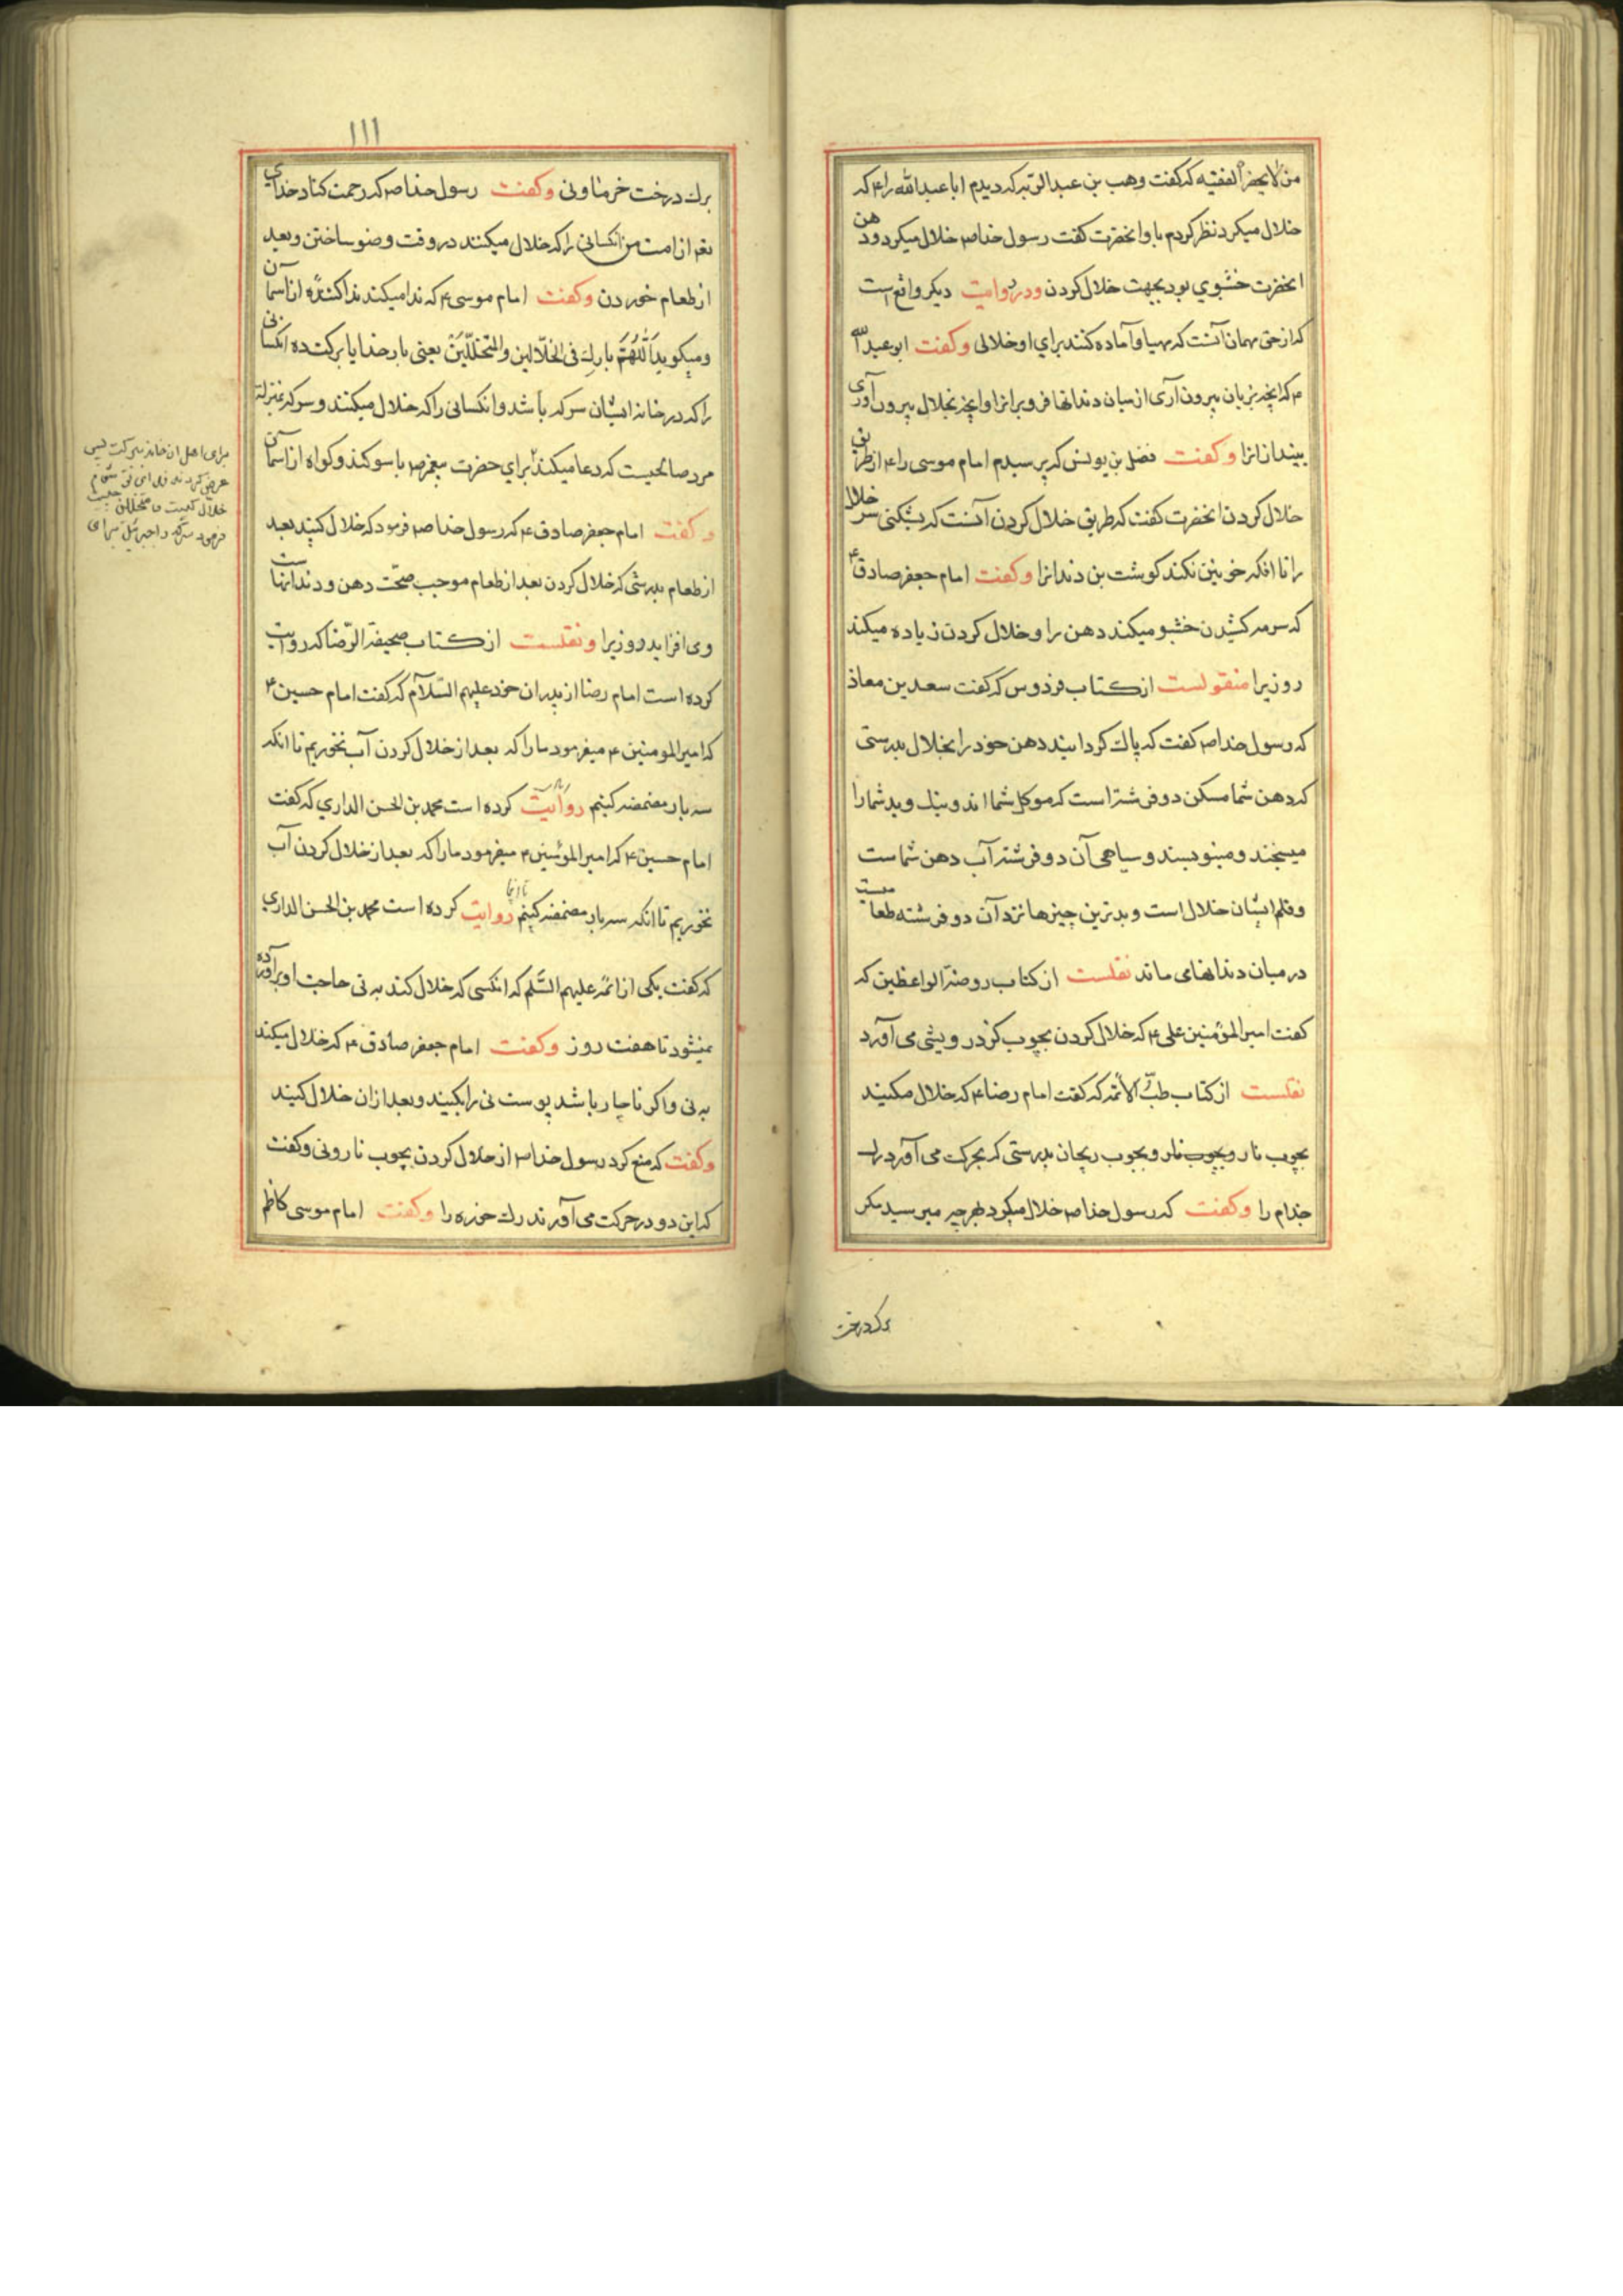 من لا یحضر الفقیه که گفت وهب بن عبد الربه که دیدم ابا عبد الله را ع که
خلال میکرد نظر کردم باو انحضرت گفت رسول خدا ص خلال میکرد و دهن
انحضرت خشبوی بود بجهت خلال کردن ودر روایت دیکر واقع است
که از حق مهمان آنست که مهیا و آماده کنند برای او خلالی وکفت ابو عبد الله
ع که انچه بزبان بیرون آری از میان دندانها فرو بر انرا و انچه بخلال بیرون آوری
بینداز انرا وکفت فضل بن یونس که پرسیدم امام موسی را ع از طریق
خلال کردن انحضرت کفت که طریق خلال کردن آنست که بشکنی سر خلال
را تا انکه خونین نکند کوشت بن دندانرا وکفت امام جعفر صادق ع
که سرمه کشیدن خشبو میکند دهن را و خلال کردن زیاده میکند
روزیرا منقولست از کتاب فردوس که گفت سعد بن معاذ
که رسول خدا ص کفت که پاک کردانید دهن خود را بخلال بدرستی
که دهن شما مسکن دو فرشته است که موکل شما اند و نیک و بد شما را
میسنجند و مینویسند و سیاهی آن دو فرشته آب دهن شماست
و قلم ایشان خلال است و بدترین چیزها نزد آن دو فرشته طعامیست
در میان دندانهای ماند نقلست از کتاب روضة الواعظین که
کفت امیر المؤمنین علی ع که خلال کردن بچوب کز درویشی می آورد
نقلست از کتاب طب الائمه که کفت امام رضا ع که خلال مکنید
بچوب نار و بچوب نار و بچوب ریحان بدرستی که بحرکت می آورد رک
جذام را وکفت که رسول خدا ص خلال میکرد بهرچه میرسید مکر
برک درخت
۱۱۱
برک درخت خرما و نی وکفت رسول خدا ص که رحمت کناد خدای
بعم از امت من انکسانی را که خلال میکنند در وقت وضو ساختن و بعد
از طعام خوردن وکفت امام موسی ع که ندا میکند ندا کننده از آسمان
و میکوید اَللّٰهُمَّ بارِک فی الخلّالین والمتخلّلین یعنی بار خدایا برکت ده انکسانی
را که در خانه ایشان سرکه باشد و انکسانی را که خلال میکنند و سرکه بمنزله
مرد صالحیست که دعا میکند برای حضرت پیغمبر ص با سوکند و کواه از آسمان
وکفت امام جعفر صادق ع که رسول خدا ص فرمود که خلال کنید بعد
از طعام بدرستی که خلال کردن بعد از طعام موجب صحّت دهن و دندانهاست
و می افزاید روزیرا ونقلست از کتاب صحیفة الرّضا که روایت
کرده است امام رضا از پدران خود علیهم السّلام که گفت امام حسین ع
که امیر المومنین ع میفرمود ما را که بعد از خلال کردن آب نخوریم تا انکه
سه بار مضمضه کنیم روایت کرده است محمد بن الحسن الداری که کفت
امام حسین ع که امیر المؤمنین ع میفرمود ما را که بعد از خلال کردن آب
نخوریم تا انکه سه بار مضمضه کنیم روایت کرده است محمد بن الحسن الداری
که کفت یکی از ائمه علیهم السّلم که انکسی که خلال کند به نی حاجت او برآورده
نمیشود تا هفت روز وکفت امام جعفر صادق ع که خلال میکند
به نی و اکر ناچار باشد پوست نی را بکنید و بعد از ان خلال کنید
وکفت که منع کرد رسول خدا ص از خلال کردن بچوب نار و نی وکفت
که این دو در حرکت می آورند رک خوره را وکفت امام موسی کاظم
برای اهل ان خانه ببرکت پس
عرض کردند
خلال کیست و متخلل چیست
فرمود سرکه را جبرئیل برای